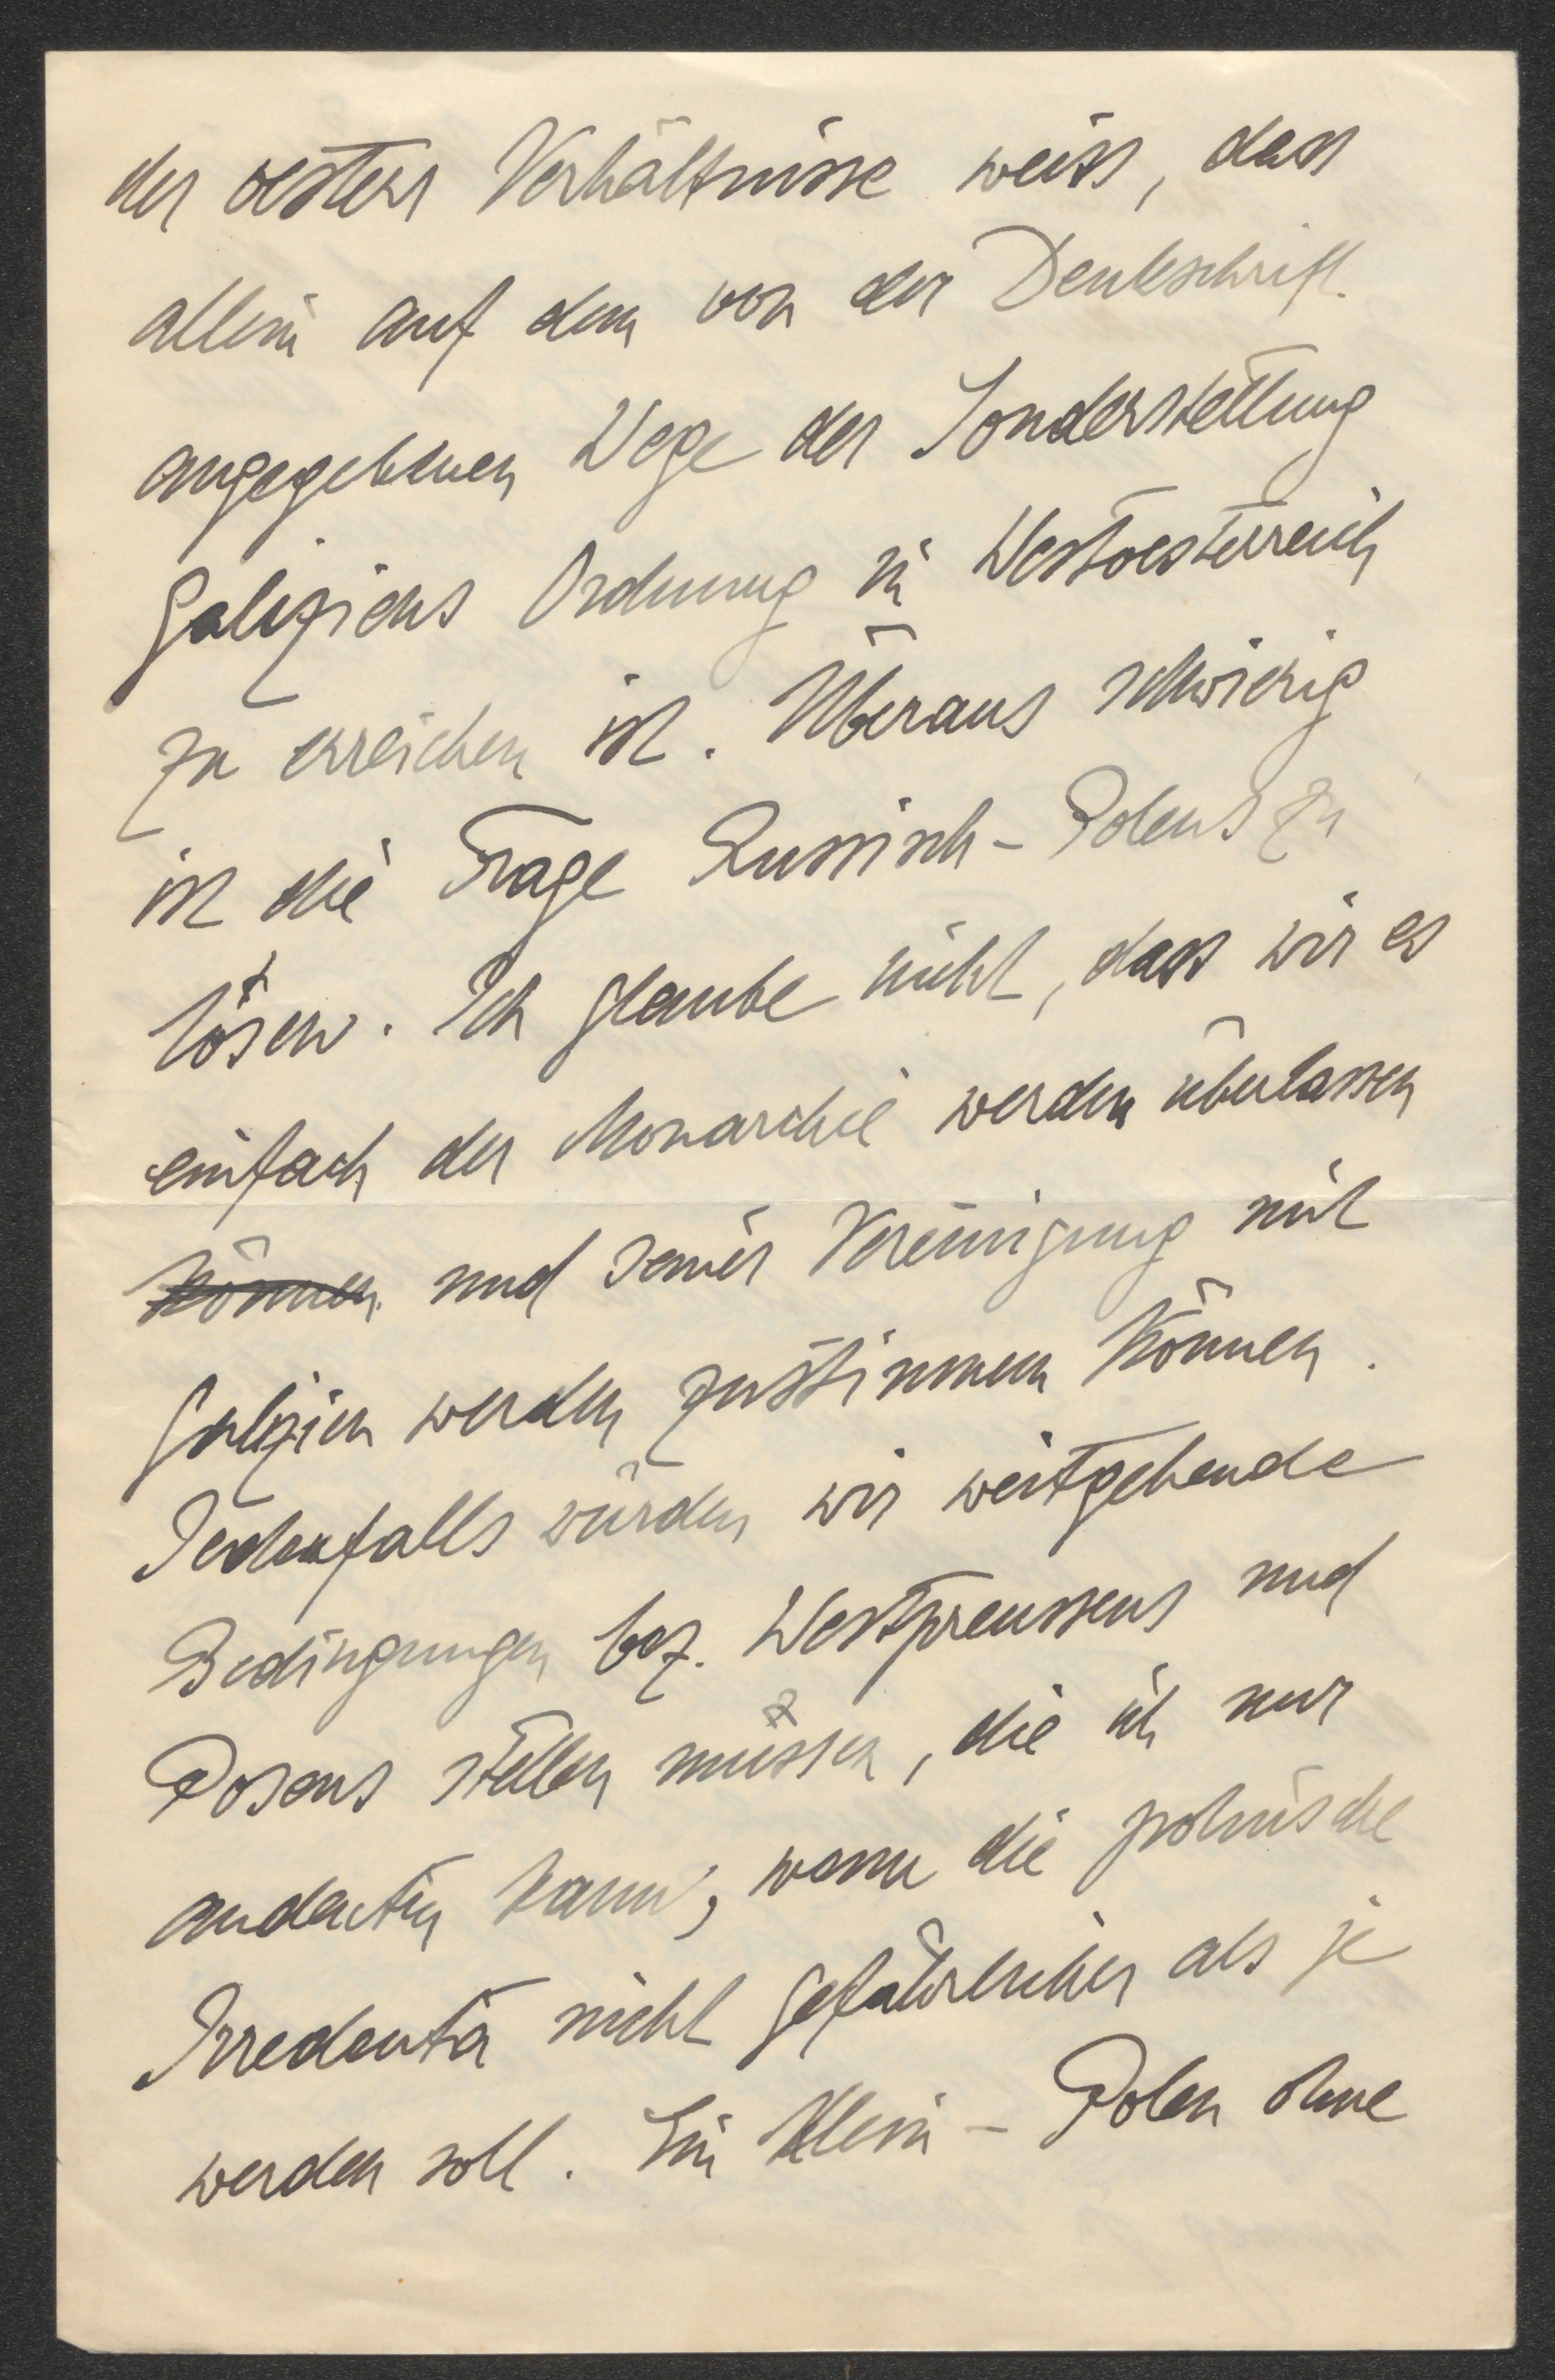 der oesterr Verhältnisse weiss, dass
allein auf dem von der Denkschrift
angegebenen Wege der Sonderstellung
Galiziens Ordnung in Westoesterreich
zu erreichen ist. Überaus schwierig
ist die Frage Russisch-Polens zu
lösen. Ich glaube nicht, dass wir es
einfach der Monarchie werden überlassen
können und seiner Vereinigung mit
Galizien werden zustimmen können.
Jedenfalls würden wir weitgehende
Bedingungen bez. Westpreussens und
Posens stellen müssen, die ich nur
andeuten kann, wenn die polnische
Irredenta nicht gefährlicher als je
werden soll. Ein Klein-Polen ohne